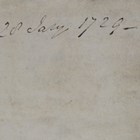 28 Jan.y 1729 –